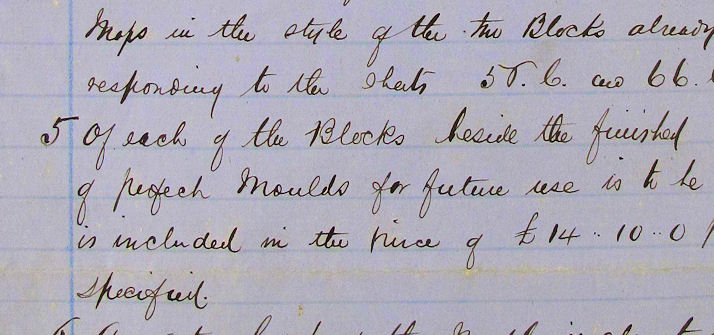 Maps in the style of the two Blocks already
responding to the sheets 5 C. and 66.
5 Of each of the Blocks beside the finished
of perfect Moulds for future use is to be
is included in the price of £14..10..0
specified.